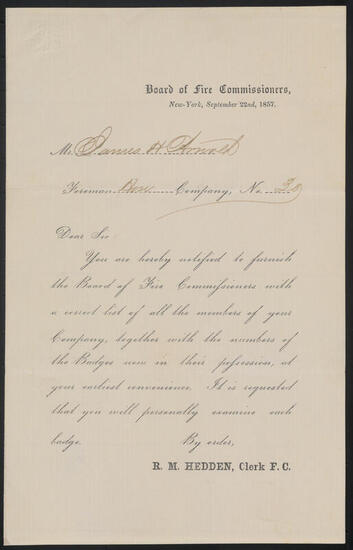 Board of Fire Commissioners,
New-York, September 22nd, 1857.
Mr. James H
Foreman Hose Company, No.
Dear Sir:
You are hereby notified to furnish
the Board of Fire Commissioners with
a correct list of all the members of your
Company, together with the numbers of
the Badges now in their possession, at
your earliest convenience. It is requested
that you will personally examine each
badge. By order,
R. M. HEDDEN, Clerk F. C.